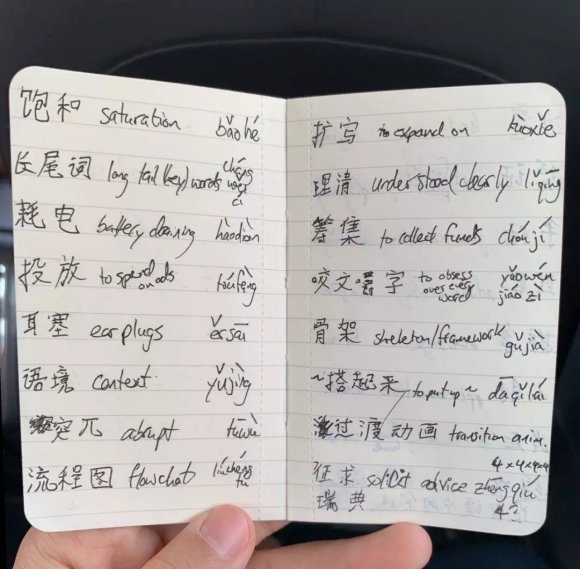 饱和 saturation bǎohé
长尾词 long tail (key) words cháng wěi cí
耗电 battery draining hàodiàn
投放 to spend on ads tóufàng
耳塞 earplugs ěrsāi
语境 context yǔjìng
突兀 abrupt tūwù
流程图 flowchat liúchéng tú
扩写 to expand on kuòxiě
理清 understood clearly lǐqīng
筹集 to collect funds chóují
咬文嚼字 to obsess over every word yǎowén jiáozì
骨架 skeleton/framework gǔjià
~搭起来 to put up ~ dāqǐlái
过渡动画 transition anim.
4x4x4x4
征求 solicit advice zhēngqiú
瑞典